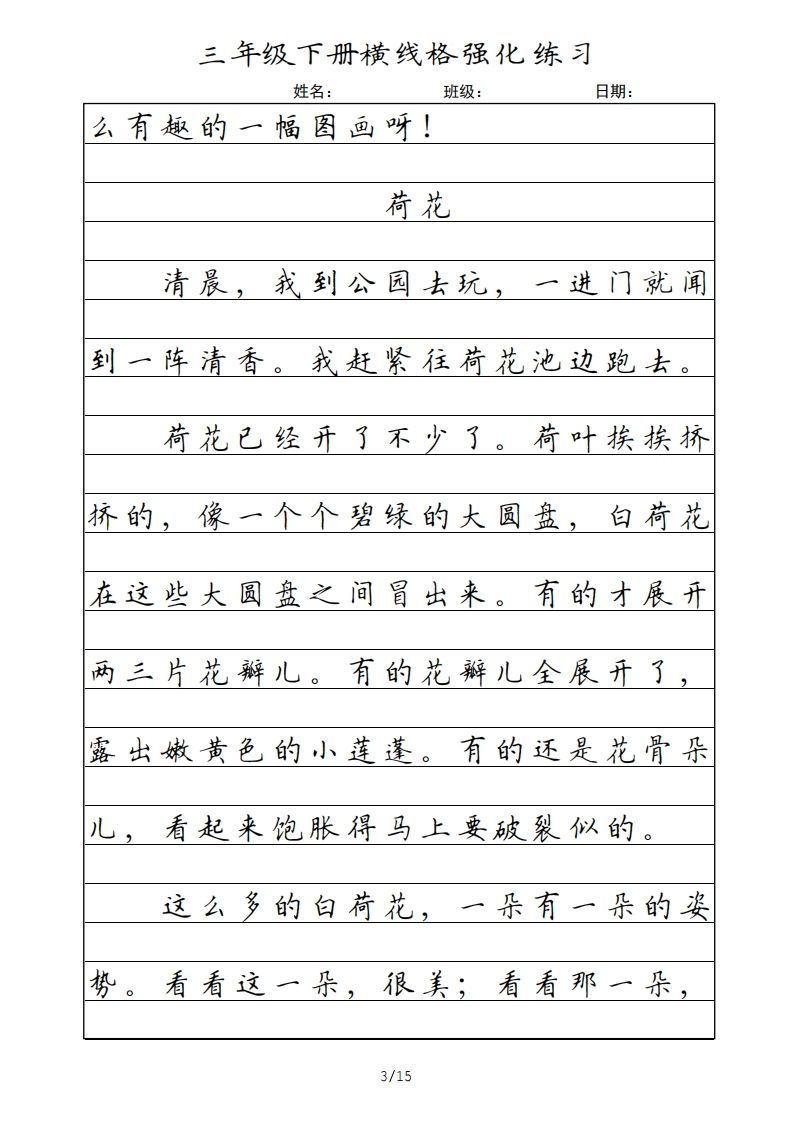 三年级下册横线格强化练习
姓名： 班级： 日期：
么有趣的一幅图画呀！
荷花
清晨，我到公园去玩，一进门就闻
到一阵清香。我赶紧往荷花池边跑去。
荷花已经开了不少了。荷叶挨挨挤
挤的，像一个个碧绿的大圆盘，白荷花
在这些大圆盘之间冒出来。有的才展开
两三片花瓣儿。有的花瓣儿全展开了，
露出嫩黄色的小莲蓬。有的还是花骨朵
儿，看起来饱胀得马上要破裂似的。
这么多的白荷花，一朵有一朵的姿
势。看看这一朵，很美；看看那一朵，
3/15